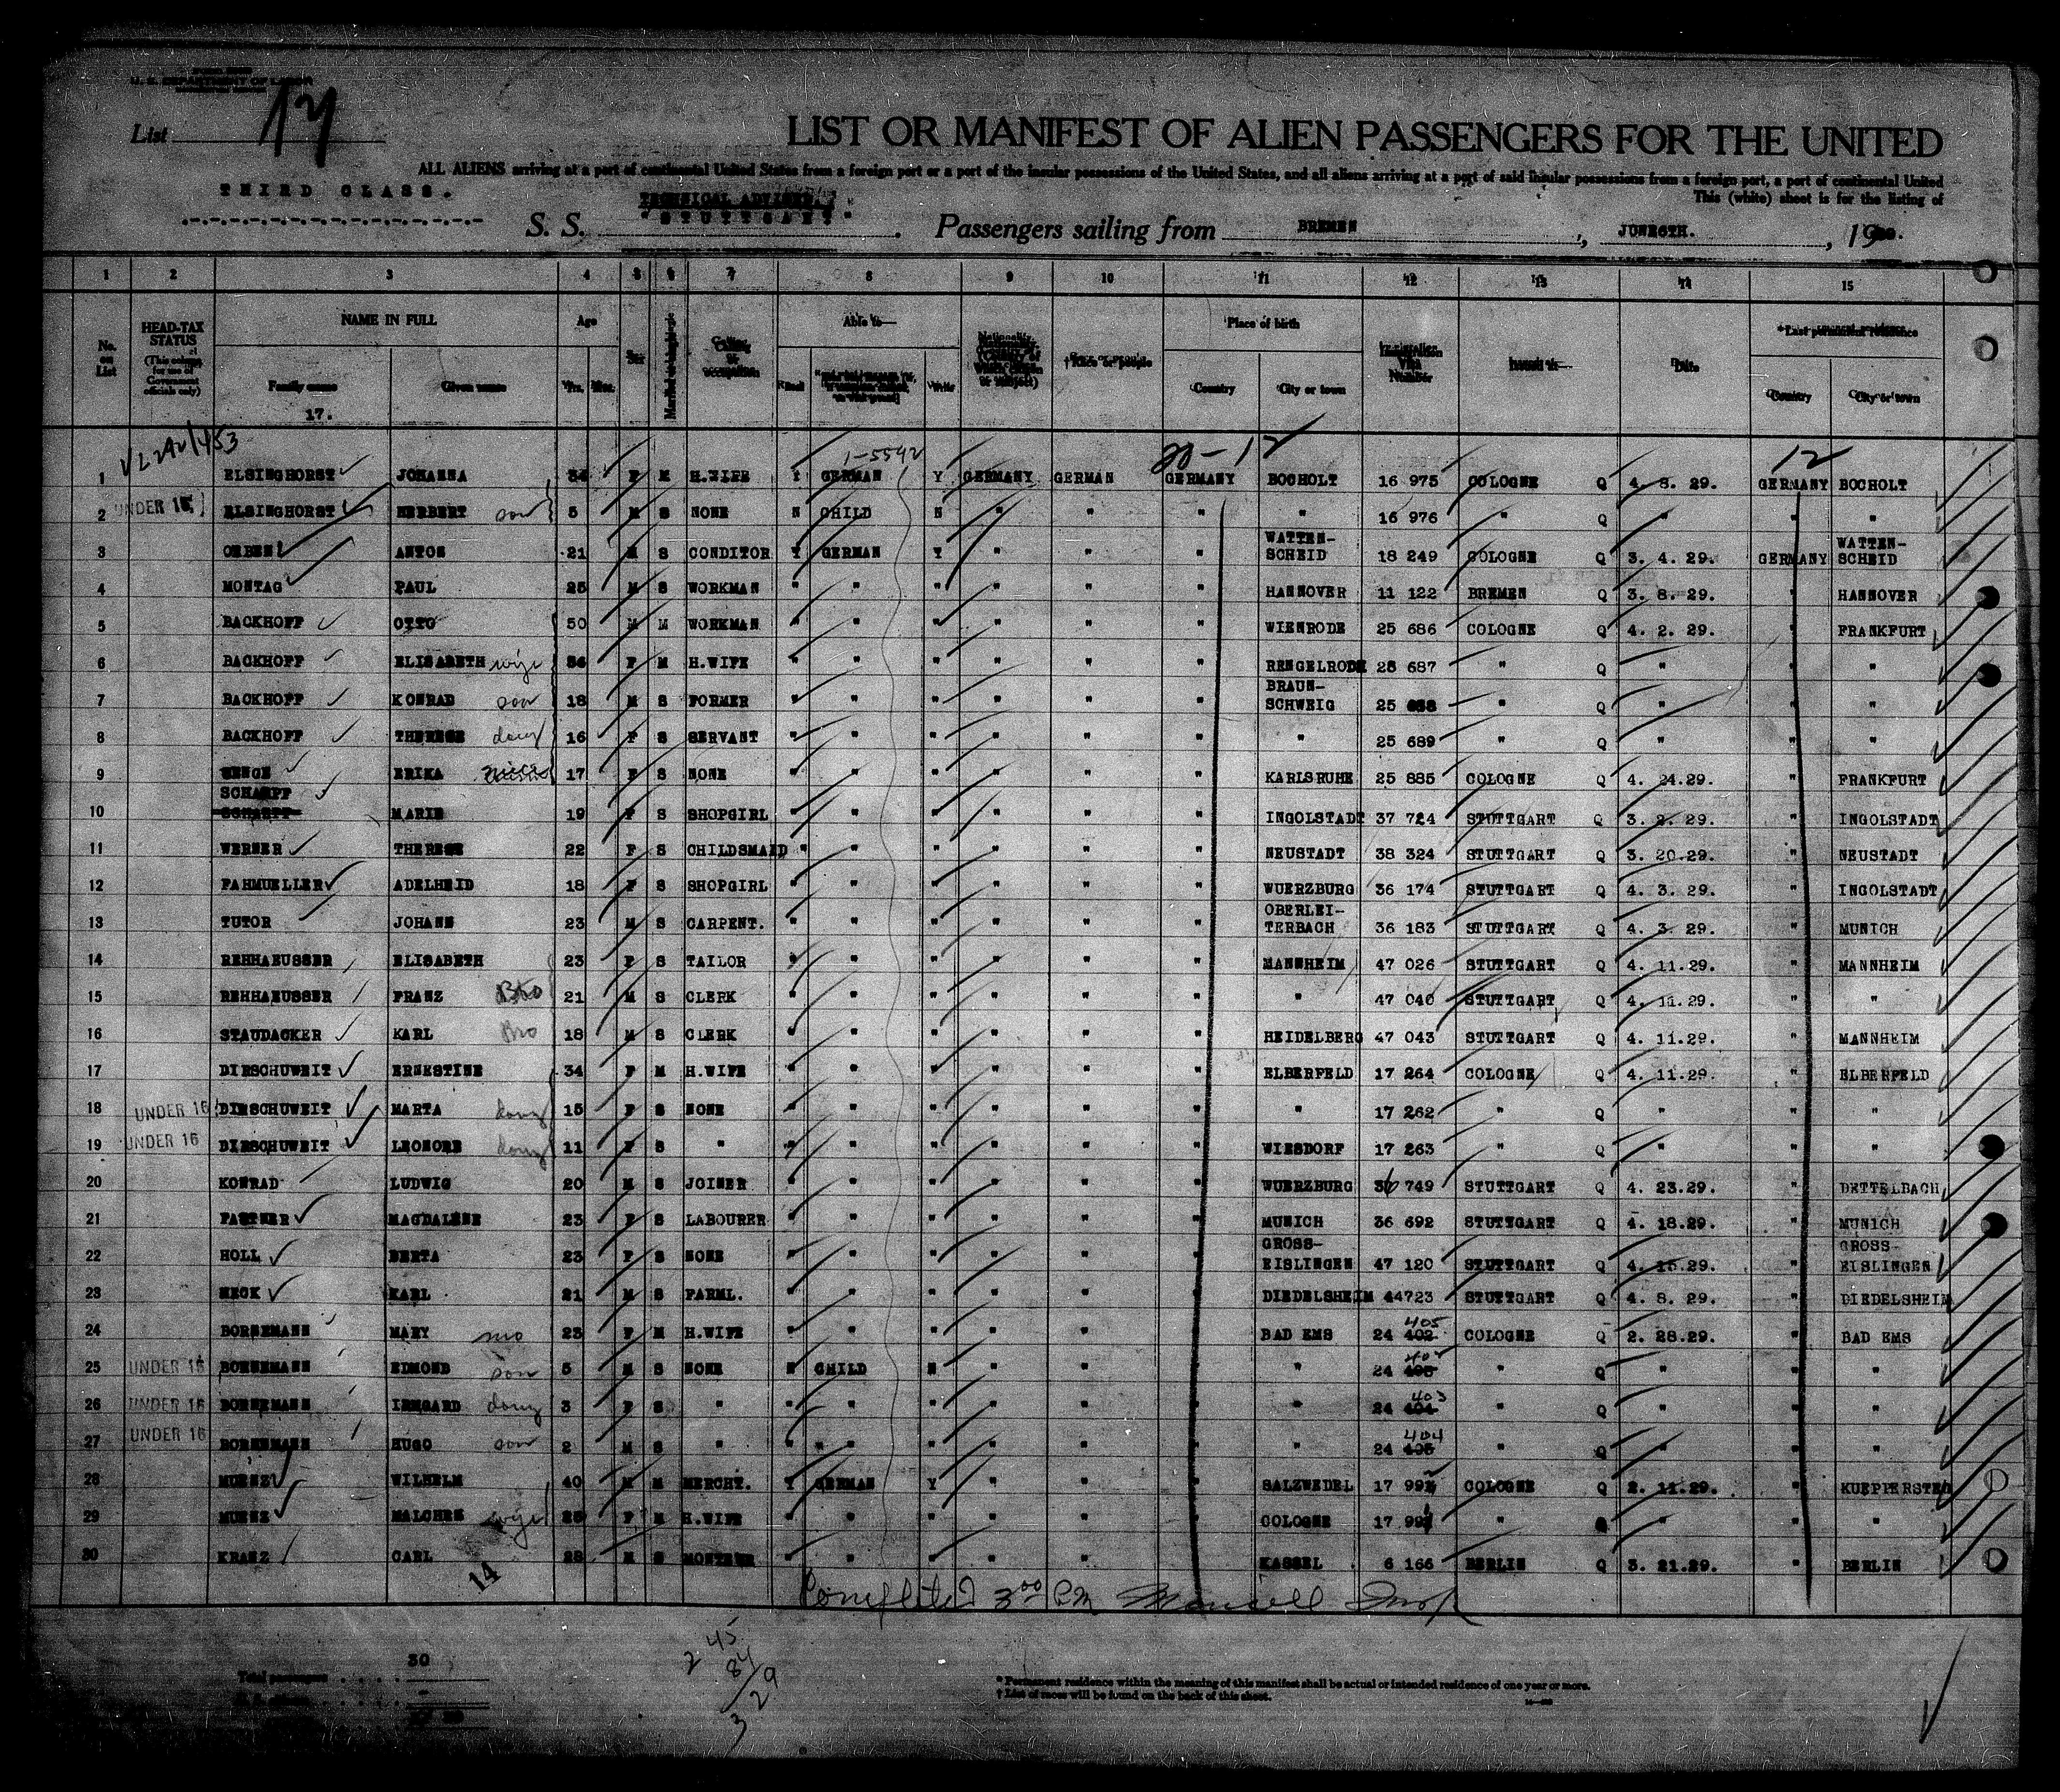 U. S. DEPARTMENT OF LABOR
List 17
LIST OR MANIFEST OF ALIEN PASSENGERS FOR THE UNITED
ALL ALIENS arriving at a port of continental United States from a foreign port or a port of the insular possessions of the United States, and all aliens arriving at a port of said insular possessions from a foreign port, a port of continental United
THIRD CLASS.
This (white) sheet is for the listing of
S. S. "STUTTGART" Passengers sailing from BREMEN,
1 2 3 4 5 6 7 8 9 10 11 12 13 14 15
No. on List HEAD-TAX STATUS (This column for use of Government officials only) NAME IN FULL Age Sex Able to— Place of birth Visa Number Issued at— Date *Last permanent residence
Family name Given name Yrs. Mos. Read Write †Race or people Country City or town Country City or town
17.
1 ELSINGHORST JOHANNA 34 F M H.WIFE Y GERMAN Y GERMANY GERMAN GERMANY BOCHOLT 16 975 COLOGNE Q 4. 8. 29. GERMANY BOCHOLT
2 UNDER 16 ELSINGHORST HERBERT son 5 M S NONE N CHILD N " " " " 16 976 " Q " " "
3 ORBEN ANTON 21 M S CONDITOR Y GERMAN Y " " " WATTEN-SCHEID 18 249 COLOGNE Q 3. 4. 29. GERMANY WATTEN-SCHEID
4 MONTAG PAUL 25 M S WORKMAN " " " " " " HANNOVER 11 122 BREMEN Q 3. 8. 29. " HANNOVER
5 BACKHOFF OTTO 50 M M WORKMAN " " " " " " WIENRODE 25 686 COLOGNE Q 4. 2. 29. " FRANKFURT
6 BACKHOFF ELISABETH wife F M H.WIFE " " " " " " RENGELRODE 25 687 " Q " " "
7 BACKHOFF KONRAD son 18 M S FORMER " " " " " " BRAUN-SCHWEIG 25 " Q " " "
8 BACKHOFF THERESE daug 16 F S SERVANT " " " " " " " 25 689 " Q " " "
9 ERIKA niece 17 F S NONE " " " " " " KARLSRUHE 25 885 COLOGNE Q 4. 24.29. " FRANKFURT
10 SCHARFF MARIE 19 F S SHOPGIRL " " " " " " INGOLSTADT 37 724 STUTTGART Q 3. 2. 29. " INGOLSTADT
11 WERNER THERESE 22 F S CHILDSMAID " " " " " " NEUSTADT 38 324 STUTTGART Q 3. 20.29. " NEUSTADT
12 FAHMUELLER ADELHEID 18 F S SHOPGIRL " " " " " " WUERZBURG 36 174 STUTTGART Q 4. 3. 29. " INGOLSTADT
13 TUTOR JOHANN 23 M S CARPENT. " " " " " " OBERLEI-TERBACH 36 183 STUTTGART Q 4. 3. 29. " MUNICH
14 REHHAEUSSER ELISABETH 23 F S TAILOR " " " " " " MANNHEIM 47 026 STUTTGART Q 4. 11.29. " MANNHEIM
15 REHHAEUSSER FRANZ Bro 21 M S CLERK " " " " " " " 47 040 STUTTGART Q 4. 11.29. " "
16 STAUDACKER KARL Bro 18 M S CLERK " " " " " " HEIDELBERG 47 043 STUTTGART Q 4. 11.29. " MANNHEIM
17 DIRSCHUWEIT ERNESTINE 34 F M H.WIFE " " " " " " ELBERFELD 17 264 COLOGNE Q 4. 11.29. " ELBERFELD
18 UNDER 16 DIRSCHUWEIT MARTA daug 15 F S NONE " " " " " " " 17 262 " Q " " "
19 UNDER 16 DIRSCHUWEIT LEONORE daug 11 F S " " " " " " " WIESDORF 17 263 " Q " " "
20 KONRAD LUDWIG 20 M S JOINER " " " " " " WUERZBURG 36 749 STUTTGART Q 4. 23.29. " DETTELBACH
21 FASTNER MAGDALENE 23 F S LABOURER " " " " " " MUNICH 36 692 STUTTGART Q 4. 18.29. " MUNICH
22 HOLL BERTA 23 F S NONE " " " " " " GROSS-EISLINGEN 47 120 STUTTGART Q 4. 15.29. " GROSS-EISLINGEN
23 HECK KARL 21 M S FARML. " " " " " " DIEDELSHEIM 44723 STUTTGART Q 4. 8. 29. " DIEDELSHEIM
24 BORNEMANN MARY mo 23 F M H.WIFE " " " " " " BAD EMS 24 402 405 COLOGNE Q 2. 28.29. " BAD EMS
25 UNDER 16 BORNEMANN EDMOND son 5 M S NONE N CHILD N " " " " 24 " Q " " "
26 UNDER 16 BORNEMANN IRMGARD daug 3 F S " " " " " " " " 24 404 403 " Q " " "
27 UNDER 16 BORNEMANN HUGO son 2 M S " " " " " " " 24 405 404 " Q " " "
28 MUENZ WILHELM 40 M M MERCHT. Y GERMAN Y " " " SALZWEDEL 17 99 COLOGNE Q 2. 11.29. " KUEPPERSTEG
29 MUENZ MALCHEN wife 25 F M H.WIFE " " " " " " COLOGNE 17 99 " Q " " "
30 KRANZ CARL 28 M S MONTEUR " " " " " " KASSEL 6 166 BERLIN Q 3. 21.29. " BERLIN
14
Completed 3 00 PM
Total passengers 30
2 45
84
3 29
* Permanent residence within the meaning of this manifest shall be actual or intended residence of one year or more.
† List of races will be found on the back of this sheet.